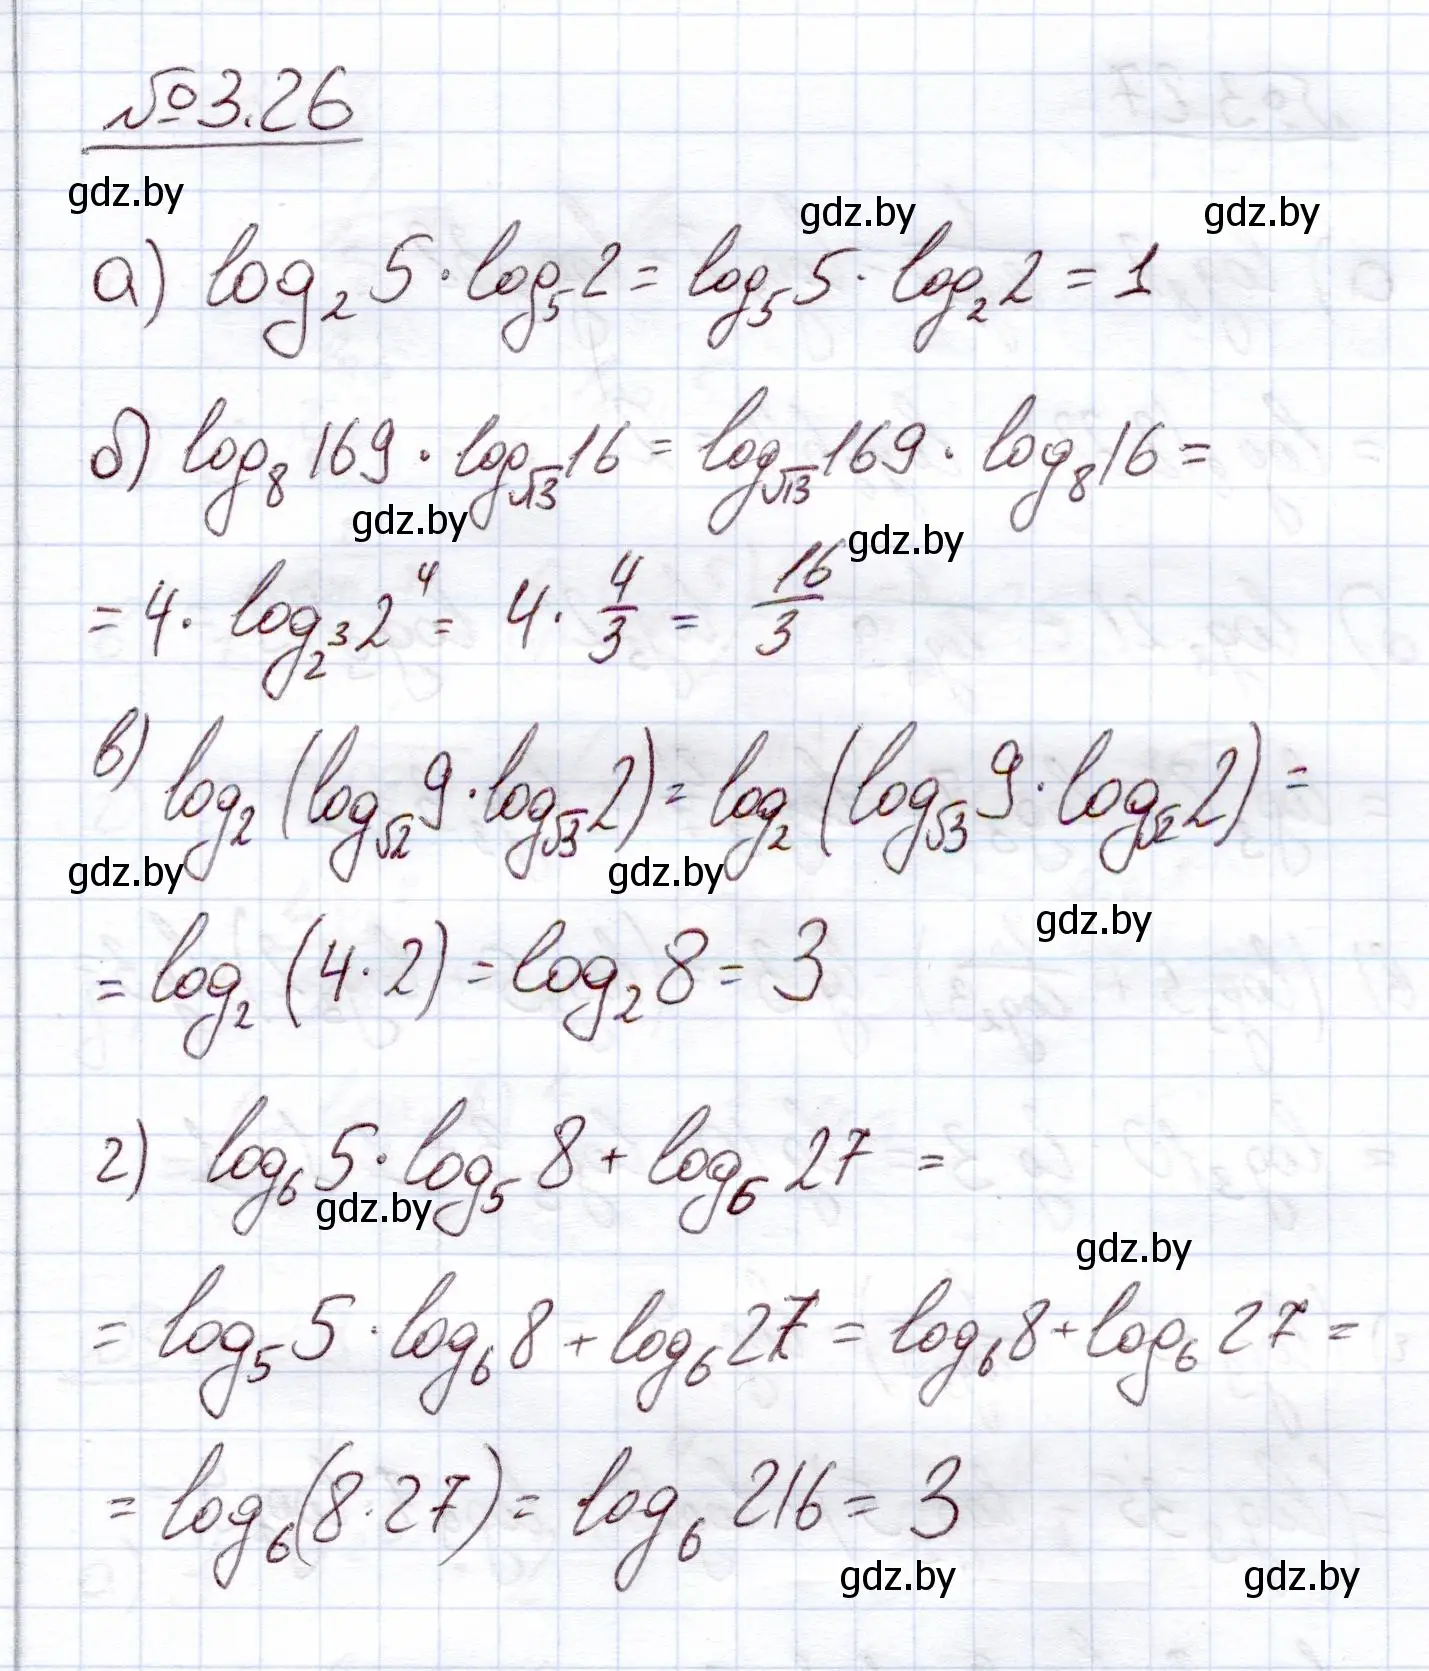 №3.26
gdz.by
gdz.by gdz.by
а) log₂5·log₅2 = log₅5·log₂2 = 1
б) log₈169·log_√13 16 = log_√13 169·log₈16 =
gdz.by gdz.by
= 4·log_2³ 2⁴ = 4·4/3 = 16/3
в) log₂(log_√2 9·log_√3 2) = log₂(log_√3 9·log_√2 2) =
gdz.by gdz.by
gdz.by
= log₂(4·2) = log₂8 = 3
г) log₆5·log₅8 + log₆27 =
gdz.by
gdz.by
= log₅5·log₆8 + log₆27 = log₆8 + log₆27 =
= log₆(8·27) = log₆216 = 3
gdz.by gdz.by